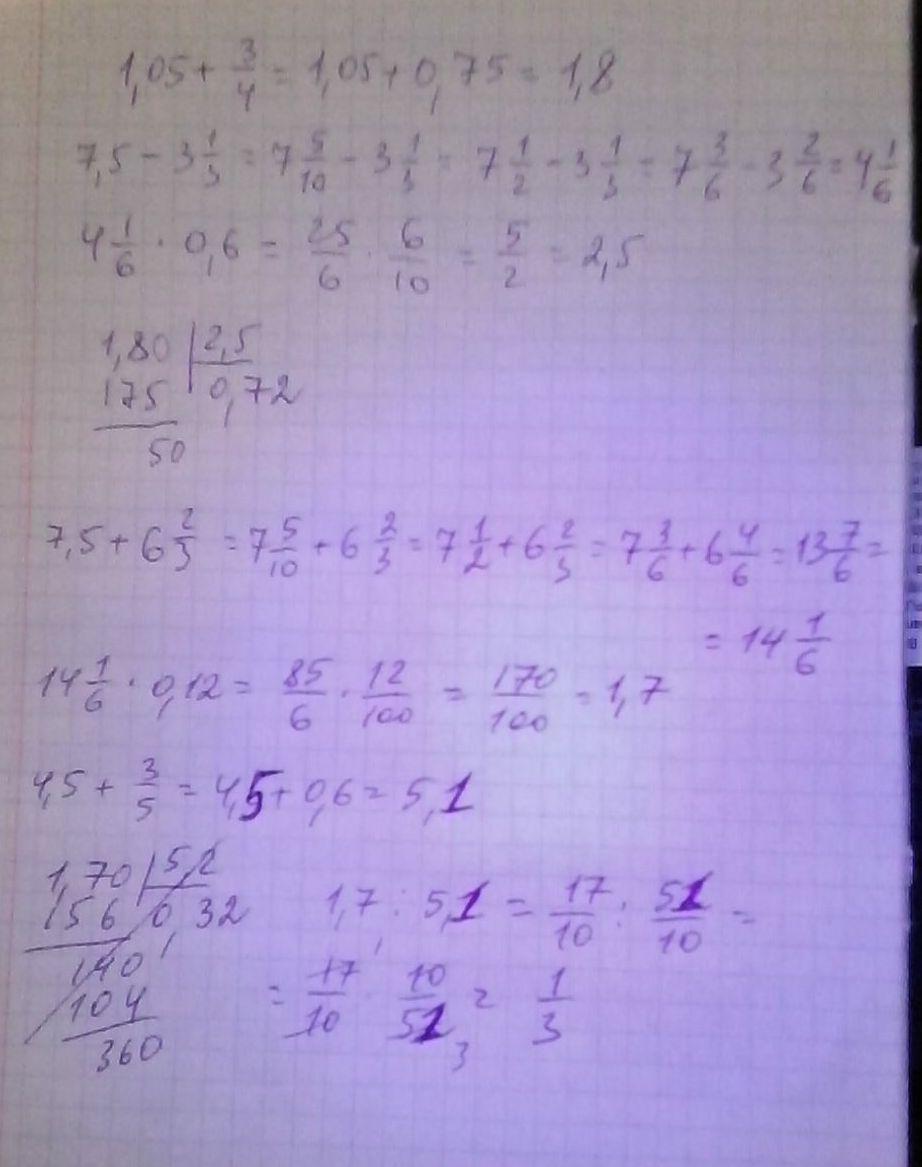 1,05 + 3/4 = 1,05 + 0,75 = 1,8
7,5 - 3 1/3 = 7 5/10 - 3 1/3 = 7 1/2 - 3 1/3 = 7 3/6 - 3 2/6 = 4 1/6
4 1/6 · 0,6 = 25/6 · 6/10 = 5/2 = 2,5
1,80 | 2,5
175 0,72
50
7,5 + 6 2/3 = 7 5/10 + 6 2/3 = 7 1/2 + 6 2/3 = 7 3/6 + 6 4/6 = 13 7/6 =
= 14 1/6
14 1/6 · 0,12 = 85/6 · 12/100 = 170/100 = 1,7
4,5 + 3/5 = 4,5 + 0,6 = 5,1
1,70 | 5,2
156 0,32
140
104
360
1,7 : 5,1 = 17/10 : 51/10 =
= 17/10 · 10/51 3 = 1/3